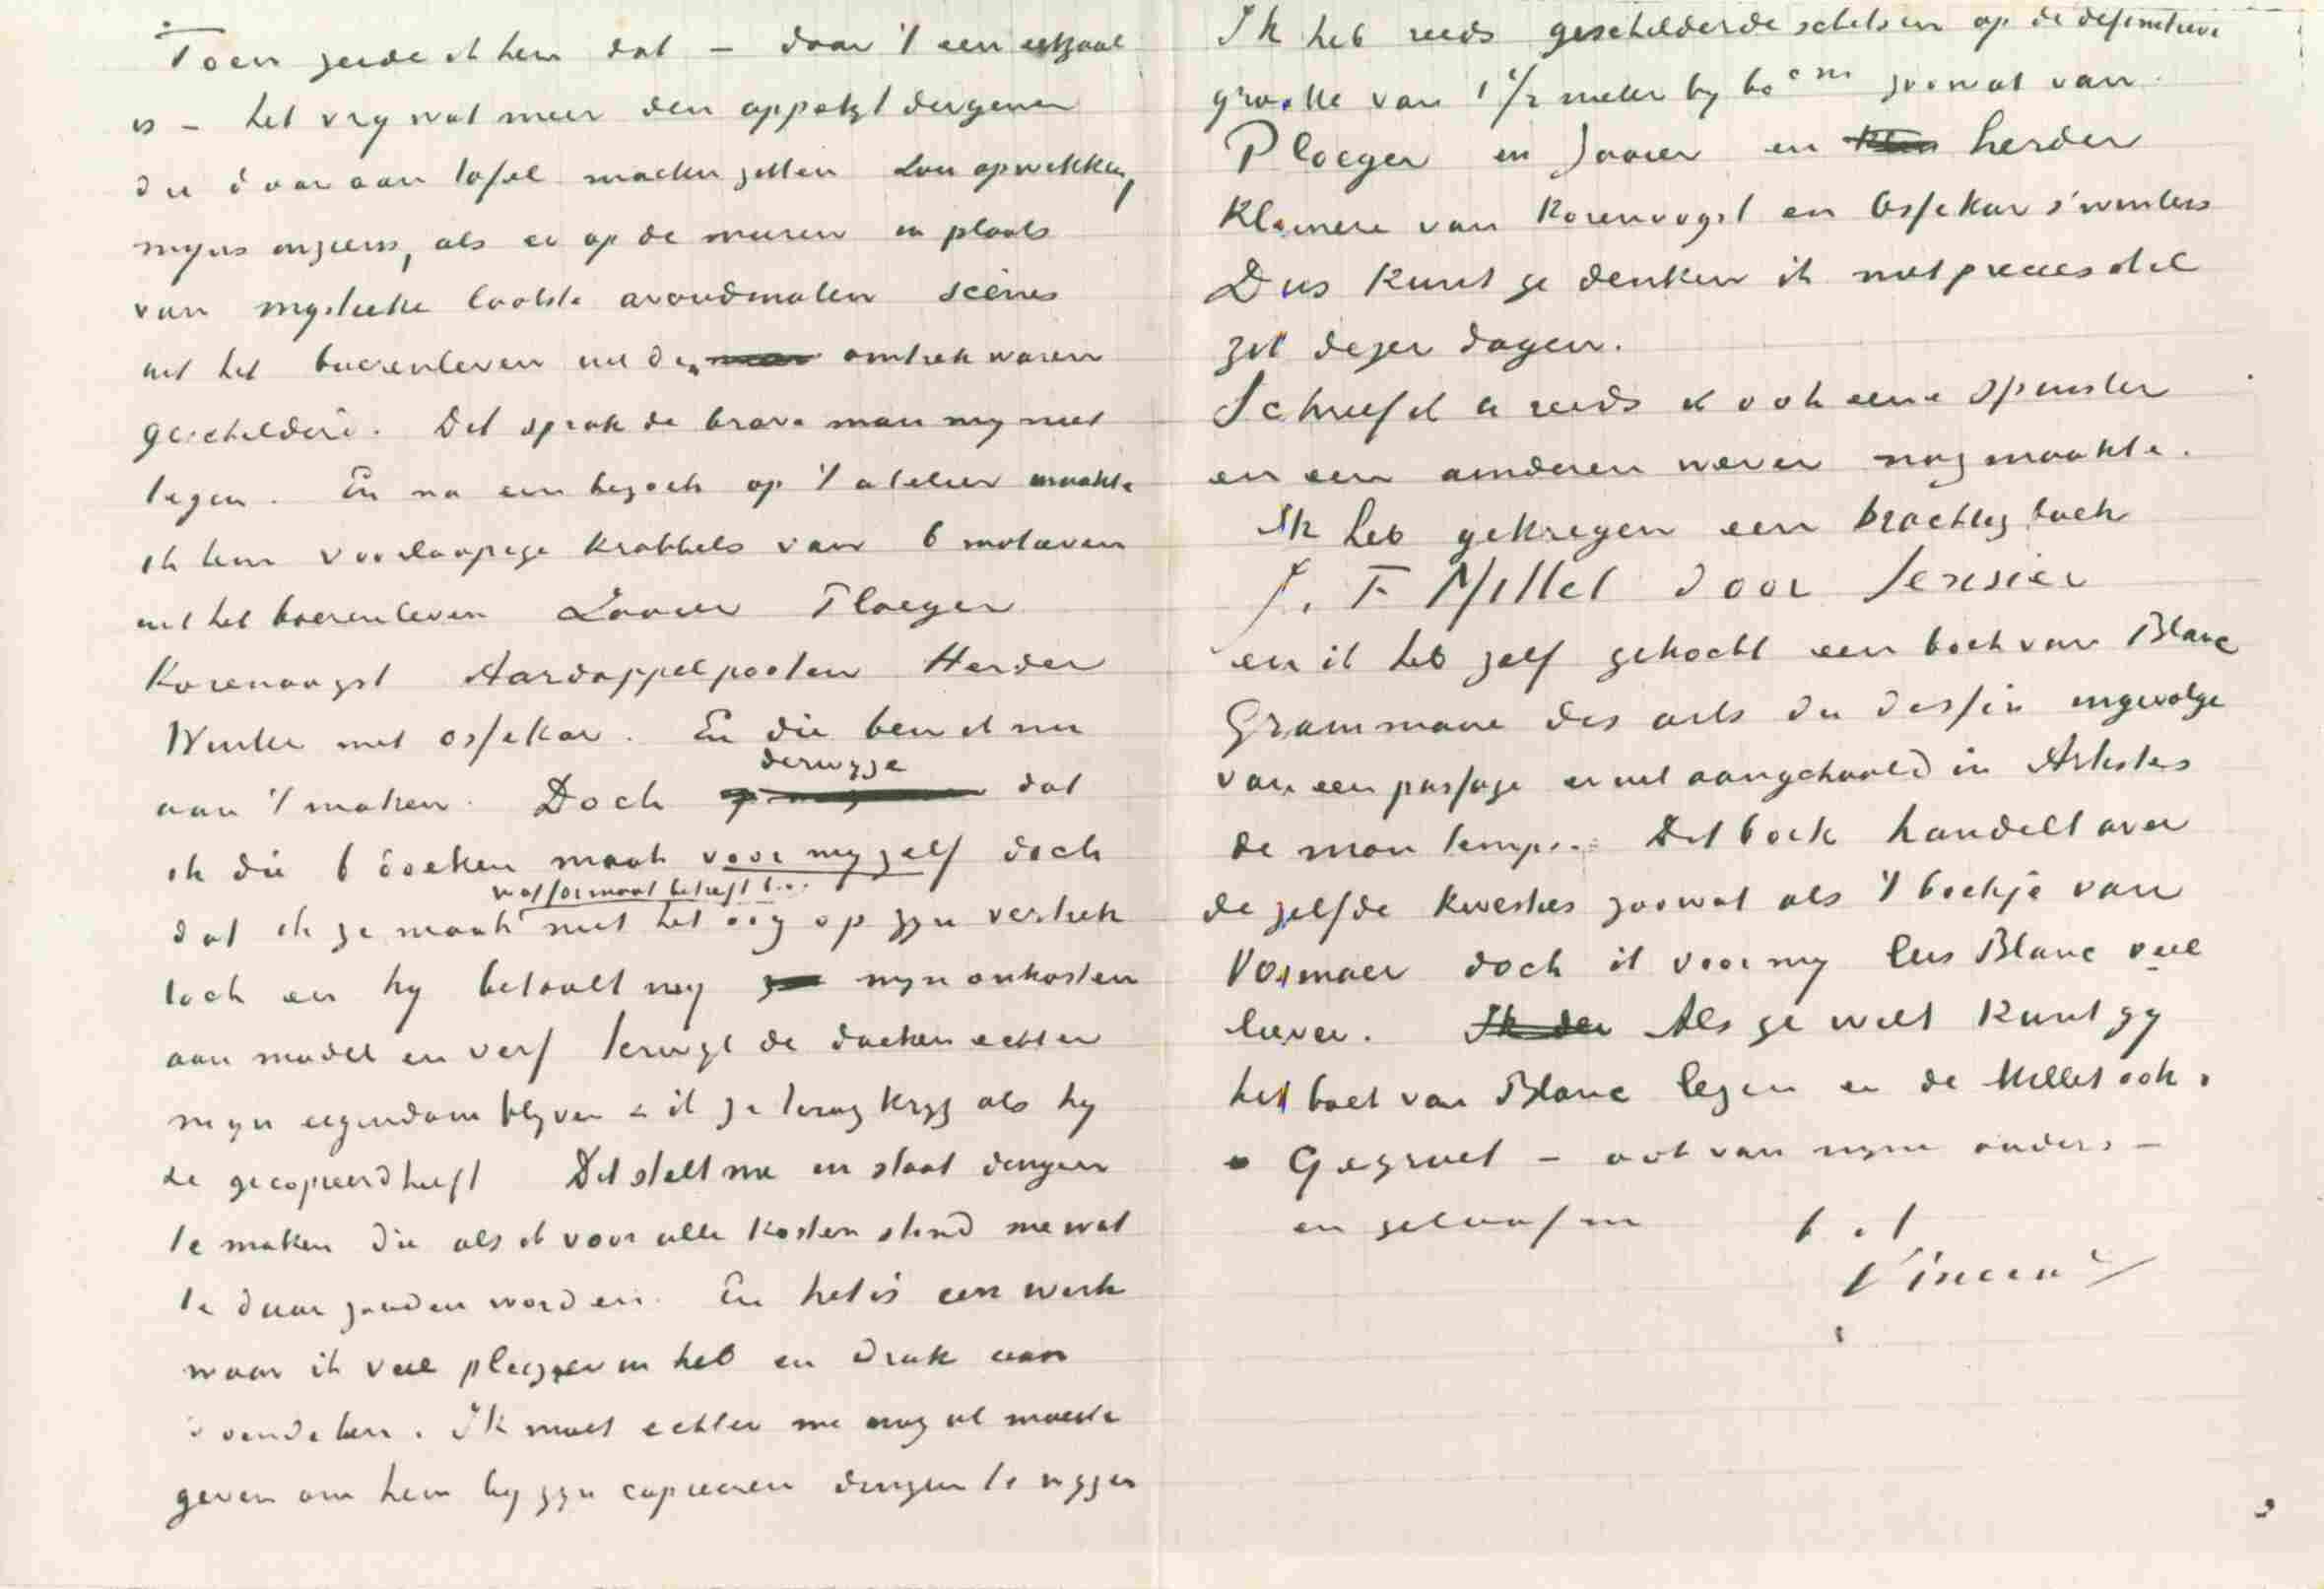 Toen zeide ik hem dat – daar 't een eetzaal
is – het vrij wat meer den appetijt dergenen
die daar aan tafel moeten zitten zou opwekken,
mijns inziens, als er op de muren in plaats
van mystieke laatste avondmalen scènes
uit het boerenleven uit den omtrek waren
geschilderd. Dit sprak de brave man mij niet
tegen. En na een bezoek op 't atelier maakte
ik hem voorloopige krabbels van 6 motieven
uit het boerenleven Zaaier Ploeger
Korenoogst Aardappelpooten Herder
Winter met ossekar. En die ben ik nu
aan 't maken. Doch derwijze dat
ik die 6 doeken maak voor mij zelf doch
dat ik ze maak wat formaat betreft &c. met het oog op zijn vertrek
toch en hij betaalt mij mijn onkosten
aan model en verf terwijl de doeken echter
mijn eigendom blijven & ik ze terug krijg als hij
ze gecopieerd heeft Dit stelt me in staat dingen
te maken die als ik voor alle kosten stond me wat
te duur zouden worden. En het is een werk
waar ik veel pleizier in heb en druk aan
doende ben. Ik moet echter me nog al moeite
geven om hem bij zijn copieeren dingen te wijzen
Ik heb reeds geschilderde schetsen op de definitieve
grootte van 1 1/2 meter bij 60 cm zoowat van
Ploeger en Zaaier en herder
Kleinere van Korenoogst en Ossekar s'winters
Dus kunt ge denken ik niet precies stil
zit dezer dagen.
Schreef ik u reeds ik ook eene spinster
en een anderen wever nog maakte.
Ik heb gekregen een prachtig boek
J. F Millet door Sensier
en ik heb zelf gekocht een boek van Blanc
Grammaire des arts du dessin ingevolge
van een passage er uit aangehaald in Artistes
de mon temps. Dit boek handelt over
de zelfde kwesties zoowat als 't boekje van
Vosmaer doch ik voor mij lees Blanc veel
liever. Als ge wilt kunt gij
het boek van Blanc lezen en de Millet ook.
Gegroet – ook van mijne ouders –
en geloof me t. à t.
Vincent